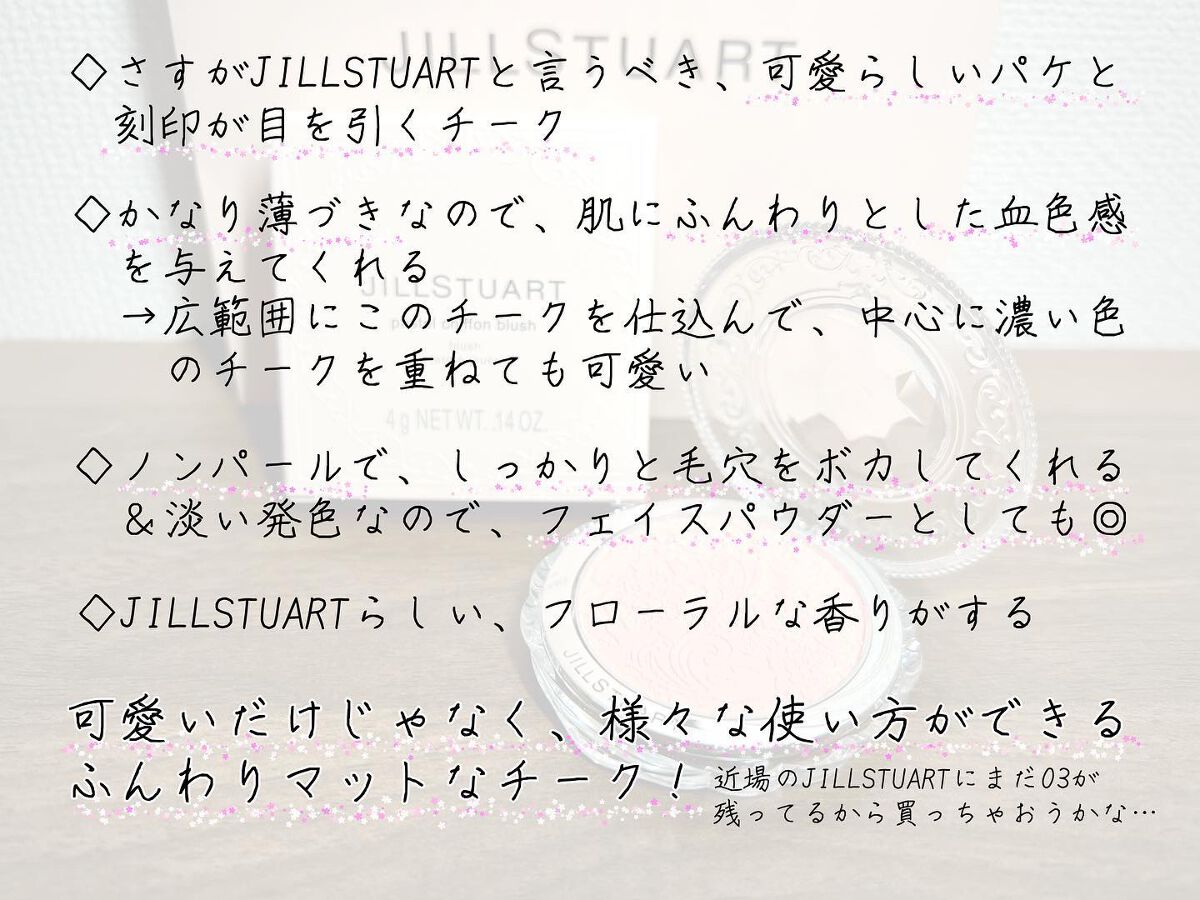 JILLSTUART
◇さすがJILLSTUARTと言うべき、可愛らしいパケと
刻印が目を引くチーク
◇かなり薄づきなので、肌にふんわりとした血色感
を与えてくれる
JILLSTUART
→広範囲にこのチークを仕込んで、中心に濃い色
blush
のチークを重ねても可愛い
4g NET WT. .14 OZ.
◇ノンパールで、しっかりと毛穴をボカしてくれる
&淡い発色なので、フェイスパウダーとしても◎
◇JILLSTUARTらしい、フローラルな香りがする
可愛いだけじゃなく、様々な使い方ができる
ふんわりマットなチーク!
近場のJILLSTUARTにまだ03が
残ってるから買っちゃおうかな…